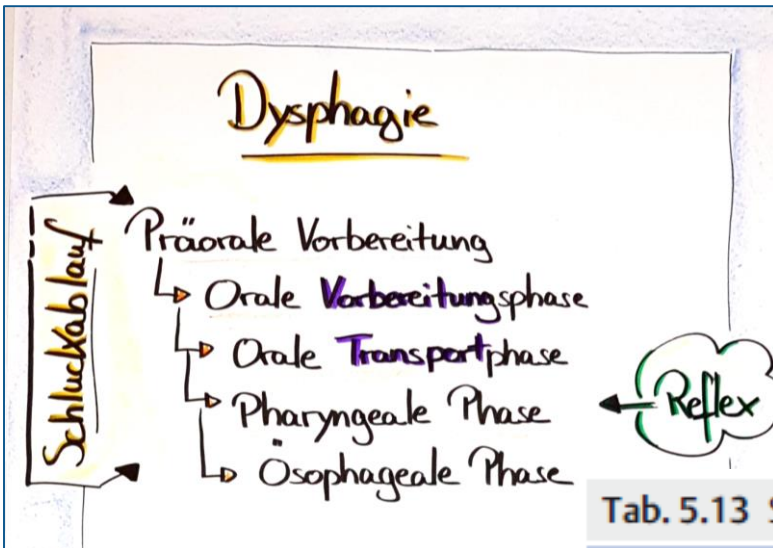 Dysphagie
Schluckablauf
Präorale Vorbereitung
Orale Vorbereitungsphase
Orale Transportphase
Pharyngeale Phase
Reflex
Ösophageale Phase
Tab. 5.13